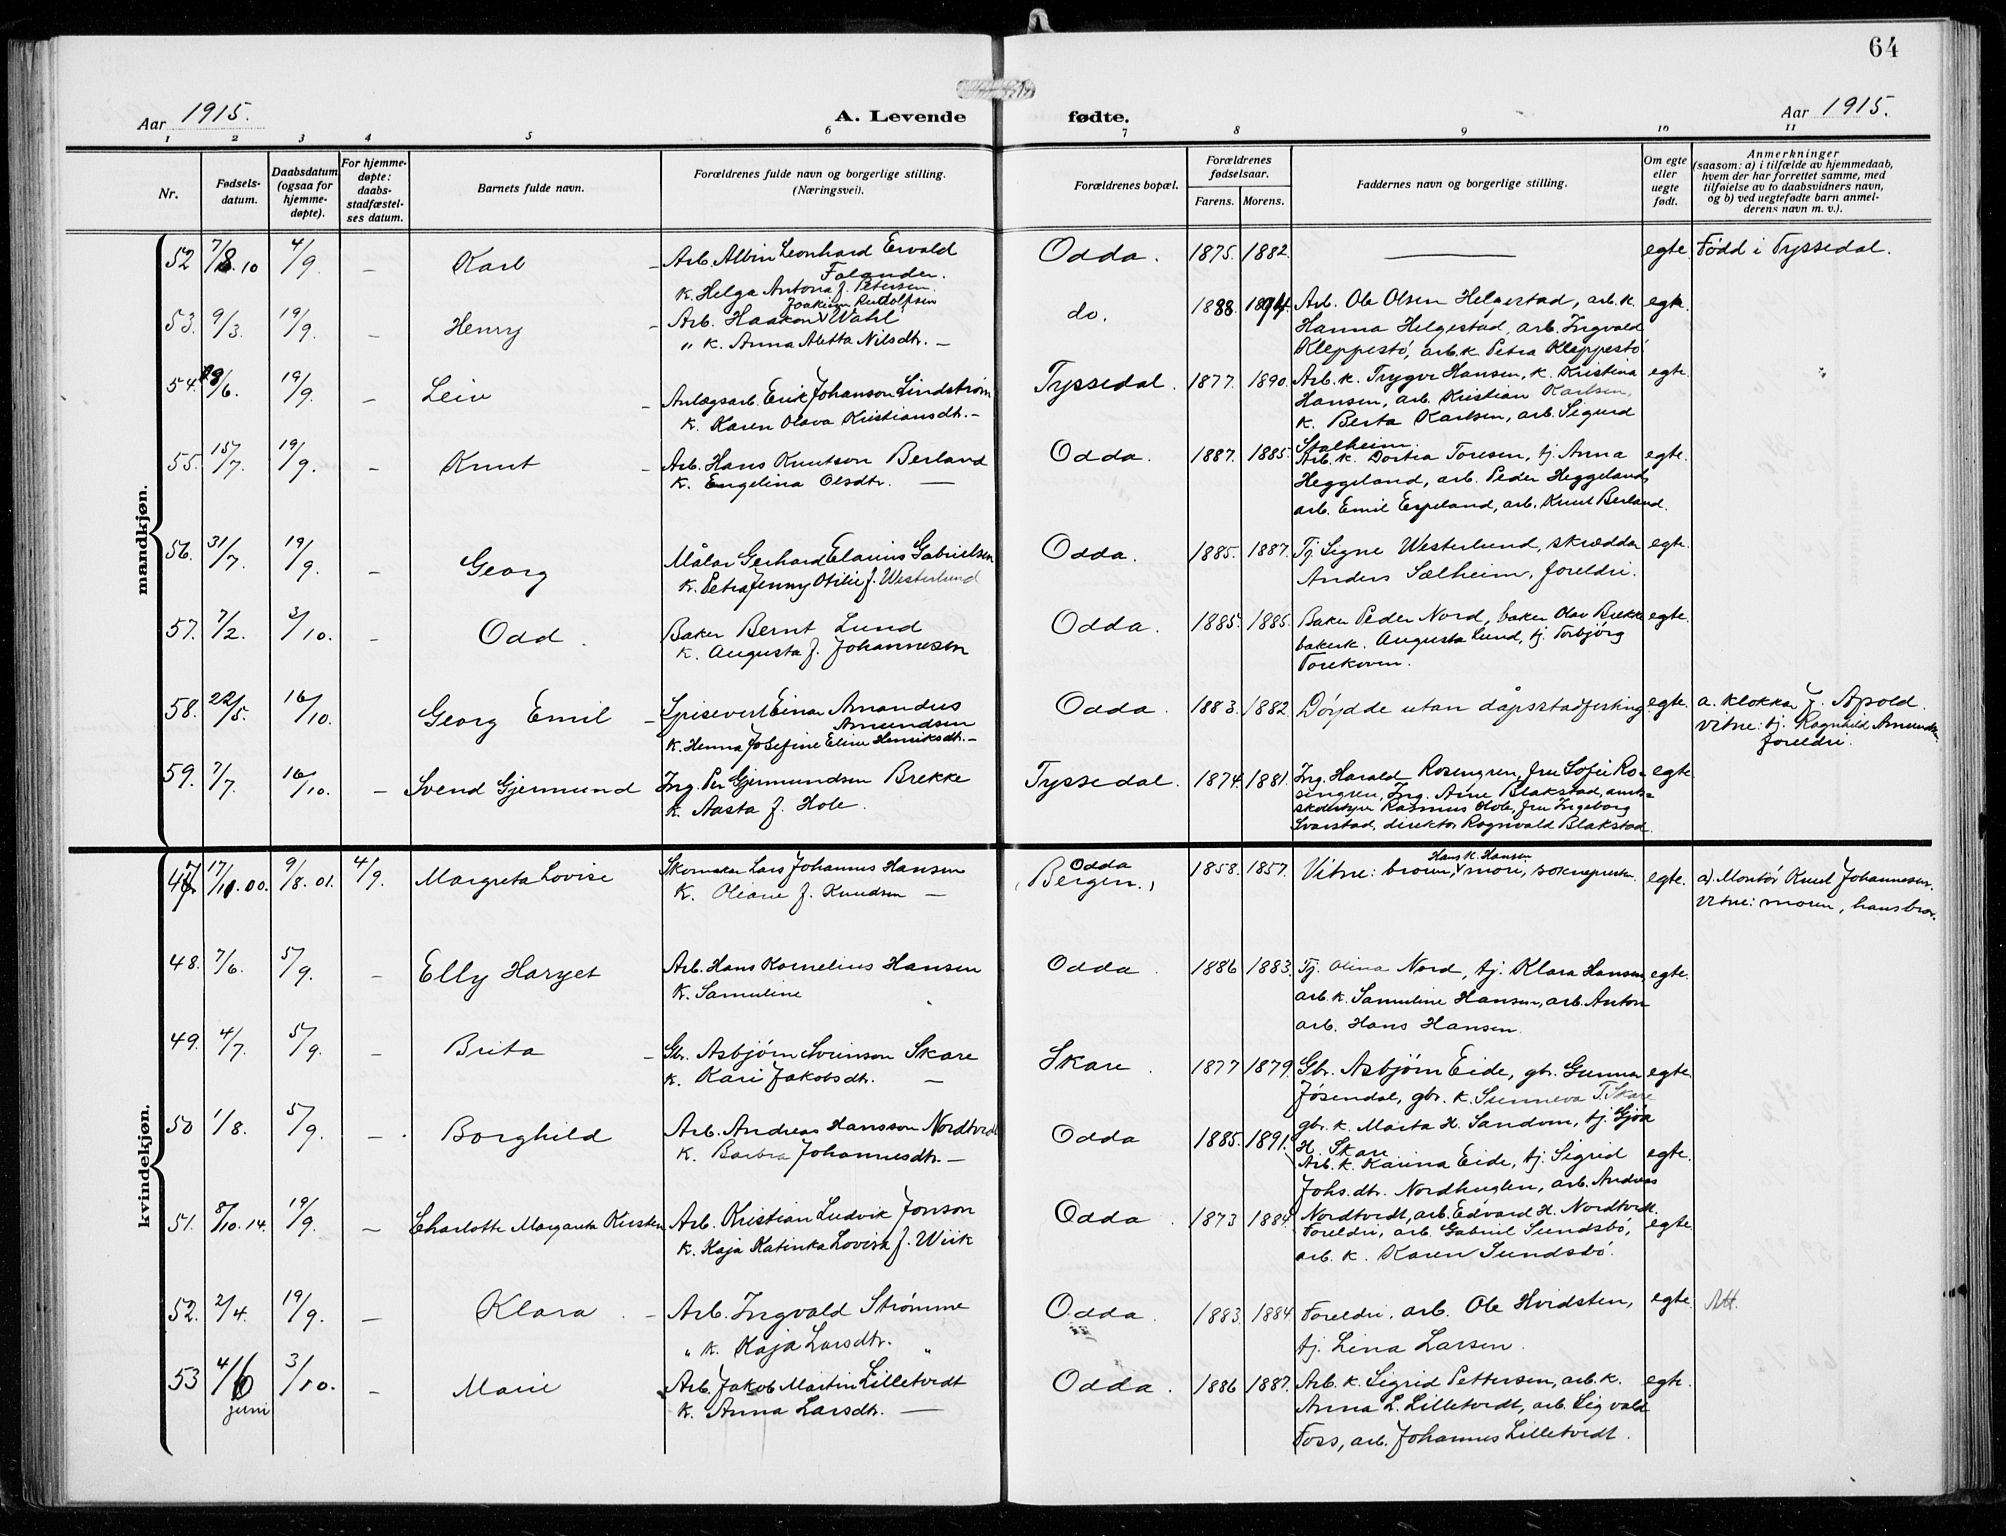 64
Aar 1915.
A. Levende fødte.
Aar 1915.
1 2 3 4 5 6 7 8 9 10 11
Nr.
Fødsels-
datum.
Daabsdatum
(ogsaa for
hjemme-
døpte).
For hjemme-
døpte:
daabs-
stadfæstel-
ses datum.
Barnets fulde navn.
Forældrenes fulde navn og borgerlige stilling.
(Næringsvei).
Forældrenes bopæl.
Forældrenes
fødselsaar.
Farens. Morens.
Faddernes navn og borgerlige stilling.
Om egte
eller
uegte
født.
Anmerkninger
(saasom: a) i tilfælde av hjemmedaab,
hvem der har forrettet samme, med
tilføielse av to daabsvidners navn,
og b) ved uegtefødte barn anmel-
derens navn m. v.).
mandkjøn.
52 7/8.10 4/9. – Karl – Arb. Albin Leonhard Ervald
Folander.
K. Helga Antona J. Petersen.
Odda. 1875. 1882. egte Fødd i Tyssedal.
53. 9/3. 19/9. – Henry – Arb. Haakon Joakim Rudolfsen Wahl
" K. Anna Aletta Nilsdtr. –
do. 1888. 1894. Arb. Ole Olsen Helgestad, arb. k. egte.
Hanna Helgestad, arb. Ingvald
Kleppestö, arb. k. Petra Kleppestö
54. /6. 19/9. – Leiv – Anlægsarb. Erik Johanson Lindström
K. Karen Olava Kristiansdtr. –
Tyssedal. 1877. 1890. Arb. k. Trygve Hansen, k. Kristina egte.
Hansen, arb. Kristian Karlsen,
k. Berta Karlsen, arb. Sigurd
Stalheim.
55. 15/7. 19/9. – Knut – Arb. Hans Knutson Berland
K. Engelina Olsdtr. –
Odda. 1887. 1885. Arb. k. Dortea Toresen, tj. Anna egte.
Heggeland, arb. Peder Heggeland,
arb. Emil Espeland, arb. Knut Berland.
56. 31/7. 19/9. – Georg Målar Gerhard Elarius Gabrielsen
K. Petra Jenny Otilie J. Westerlund
Odda. 1885. 1887. Tj. Signe Westerlund, skrædder egte.
Anders Sælheim, foreldri.
57. 7/2. 3/10. – Odd. Baker Bernt Lund
K. Augusta J. Johannesen
Odda. 1885. 1885. Baker Peder Nord, baker Olav Brekke egte.
bakerk. Augusta Lund, tj. Torbjörg
58. 22/5. 16/10. Georg Emil – Spisevert Einar Amandus
Amundsen
K. Henna Josefine Eline Henriksdtr. –
Odda. 1883. 1882. Døydde utan dåpsstadfesting. egte. a. klokkar J. Apold.
vitne: tj. Ragnhild Amundsen,
foreldri.
59. 7/7. 16/10. – Svend Gjermund Ing. Per Gjermundsen Brekke
K. Aasta J. Hole.
Tyssedal. 1874. 1881. Ing. Harald Rosengren, fru Sofie Ro- egte
sengren, Ing. Arne Blakstad, amts-
skolestyr Rasmus Hole, fru Ingeborg
Svarstad, direktør Ragnvald Blakstad.
kvindekjøn.
47. 17/11.00. 9/8.01. 4/9. Margreta Lovise Skomaker Lars Johannes Hansen
K. Oliane J. Knudsen –
Odda
(Bergen.) 1858. 1857. Vitne: broren, Hans K. Hansen mori, sokneprestn. egte. a). Montør Knut Johannesen.
Vitne: moren, hans bror.
48. 7/6. 5/9. – Elly Haryet Arb. Hans Kornelius Hansen
K. Samuline
Odda. 1886 1883. Tj. Olina Nord, tj. Klara Hansen, egte.
arb. k. Samuline Hansen, arb. Anton
arb. Hans Hansen.
49. 4/7. 5/9. – Brita – Gbr. Asbjørn Sveinson Skare
K. Kari Jakobsdtr. –
Skare. 1877 1879. Gbr. Asbjørn Eide, gbr. Gunnar egte.
Jøsendal, gbr. k. Sunneva T. Skare
gbr. k. Marta H. Sandven, tj. Gjøa
H. Skare
50 1/8. 5/9. – Borghild Arb. Andreas Hansson Nordtvedt
K. Barbra Johannesdtr. –
Odda 1885. 1891. Arb. k. Karina Eide, tj. Sigrid egte.
Johs.dtr. Nordhuglen, arb. Andreas
Nordtvedt, arb. Edvard H. Nordtvedt.
51. 8/10.14. 19/9. – Charlotte Margareta Kirsten Arb. Kristian Ludvik Jonson
K. Kaja Katinka Lovisa J. Wiik
Odda. 1873 1884. Foreldri, arb. Gabriel Sundsbö, egte.
arb. k. Karen Sundsbö.
52. 2/4. 19/9. – Klara – Arb. Ingvald Strømme
" K. Kaja Larsdtr. "
Odda. 1883. 1884. Foreldri, arb. Ole Hvidsten, egte. Att.
tj. Lina Larsen.
53 4/6 juni 3/10. – Marie Arb. Jakob Martin Lilletvedt
K. Anna Larsdtr. –
Odda. 1886 1887. Arb. k. Sigrid Pettersen, arb. k. egte.
Anna L. Lilletvedt, arb. Sigvald
Foss, arb. Johannes Lilletvedt.